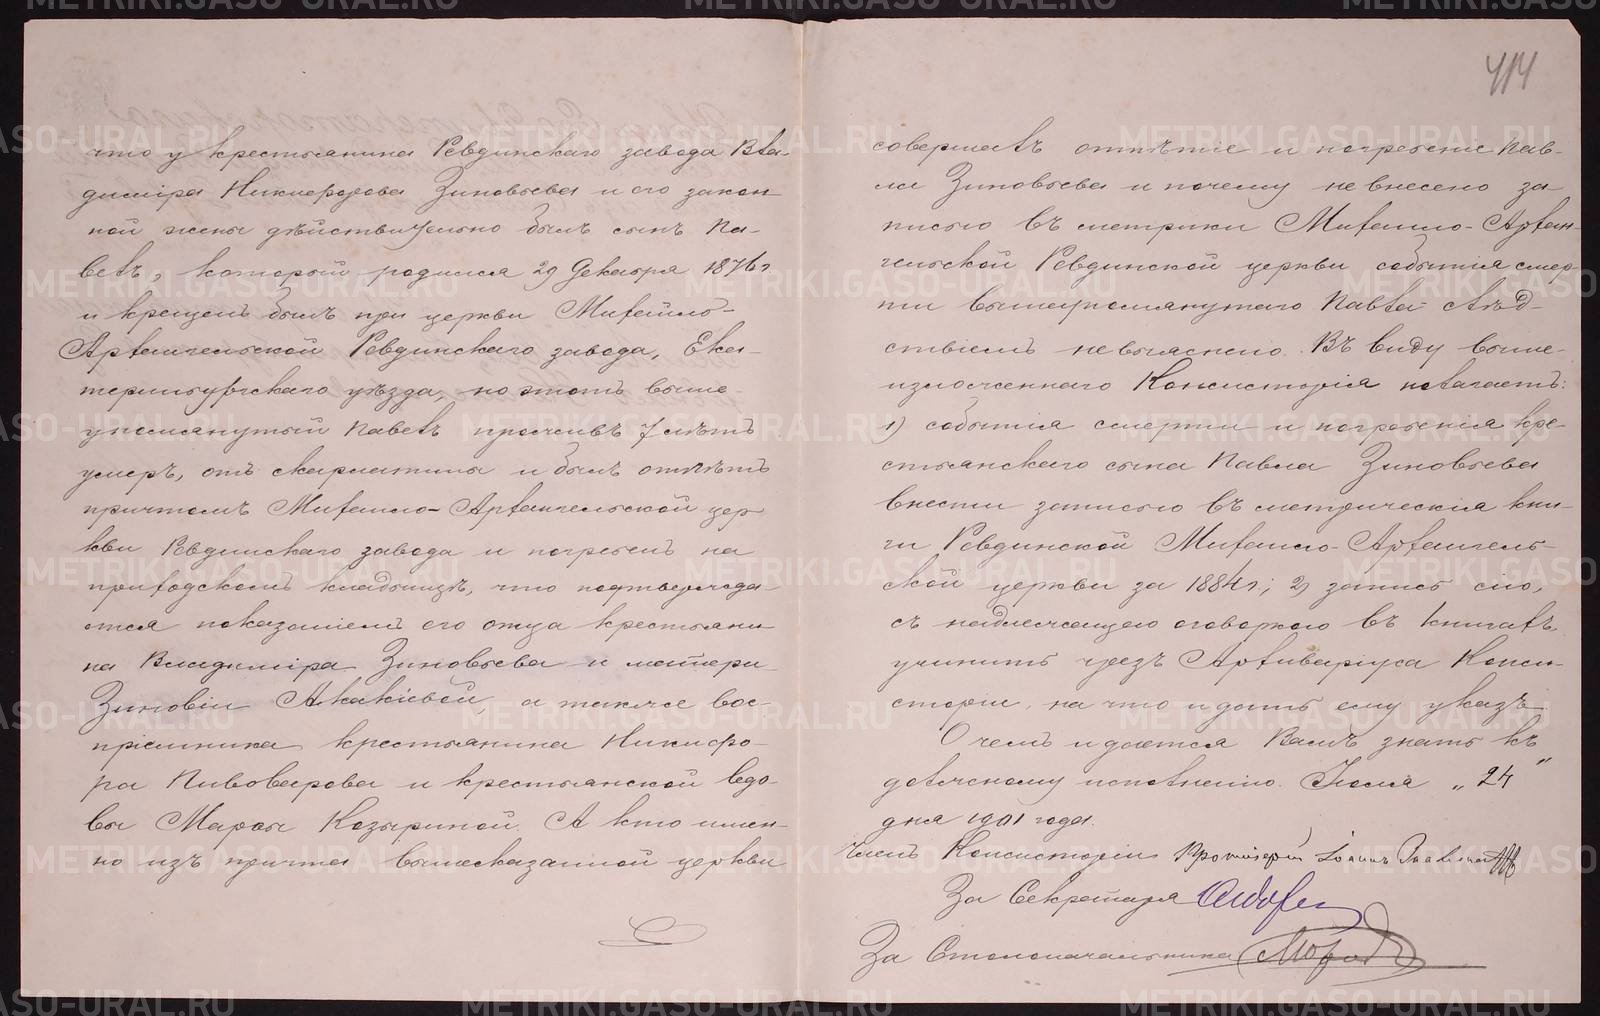 что у крестьянина Ревдинскаго завода Вла-
диміра Никифорова Зиновьева и его закон
ной жены дѣйствительно былъ сынъ Па-
велъ, который родился 29 Декабря 1876 г.
и крещенъ былъ при церкви Михаило-
Архангельской Ревдинскаго завода, Ека-
теринбургскаго уѣзда, но этотъ выше-
упомянутый Павелъ проживъ 7 лѣтъ
умеръ, отъ скарлатины и былъ отпѣтъ
причтомъ Михаило-Архангельской цер
кви Ревдинскаго завода и погребенъ на
приходскомъ кладбищѣ, что подтвержда-
ется показаніемъ его отца крестьяни
на Владиміра Зиновьева и матери
Зиновіи Акакіевой, а также вос-
пріемника крестьянина Никифо-
ра Пивоварова и крестьянской вдо-
вы Марѳы Козыриной. А кто имен-
но изъ причта вышесказанной церкви
414
совершалъ отпѣтіе и погребеніе Пав-
ла Зиновьева и почему не внесено за
писью въ метрики Михаило-Архан-
гельской Ревдинской церкви событія смер
ти вышеупомянутаго Павла слѣд-
ствіемъ не выяснено. Въ виду выше-
изложеннаго Консисторія полагаетъ:
1) событія смерти и погребенія кре-
стьянскаго сына Павла Зиновьева
внести записью въ метрическія кни-
ги Ревдинской Михаило-Архангель-
ской церкви за 1884 г.; 2) запись сію,
съ надлежащею оговоркою въ книгахъ,
учинить чрезъ Архиваріуса Конси-
сторіи, на что и дать ему указъ.
О чемъ и дается Вамъ знать къ
должному исполненію. Іюля „24"
дня 1901 года.
Членъ Консисторіи Протоіерей Іоаннъ
За Секретаря
За Столоначальника
METRIKI.GASO-URAL.RU